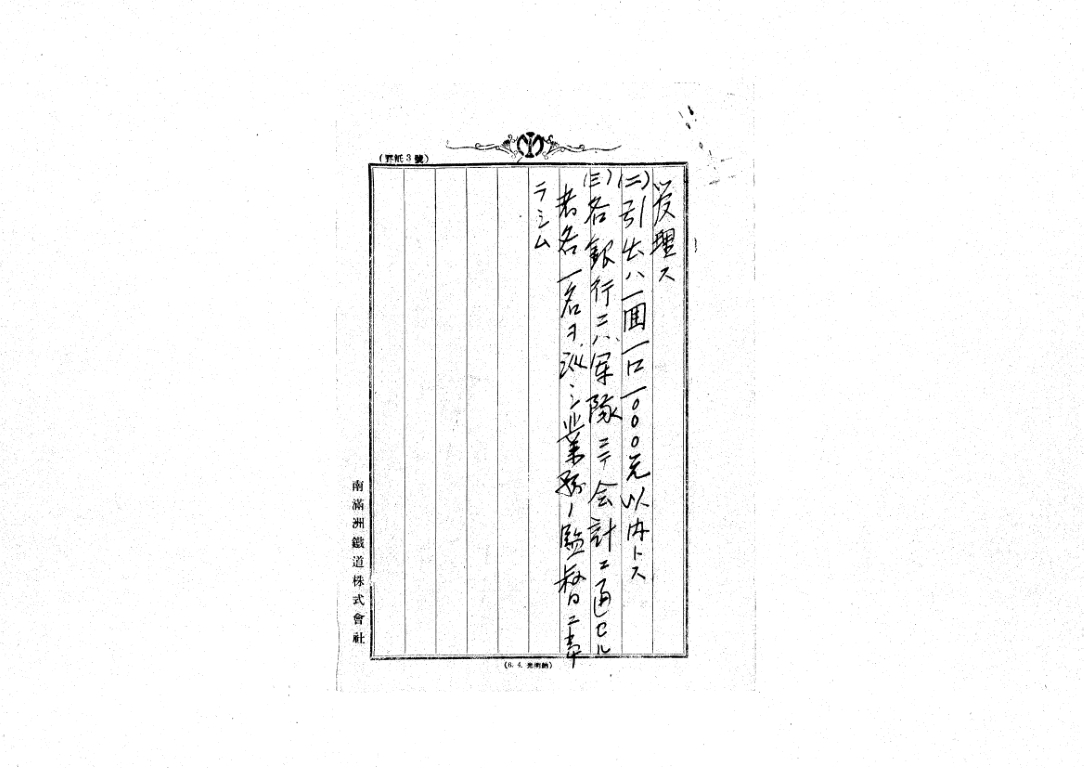 (罫紙3號)
受理ス
(二)引出ハ一囬一口一〇〇〇元以内トス
(三)各銀行ニハ軍隊ニテ会計ニ通セル
者各一名ヲ派シ業務ノ監督ニ当
ラシム
南滿洲鐵道株式會社